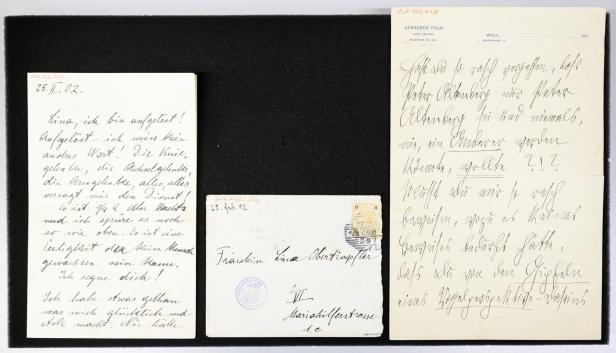 25. II. 02.
Lina, ich bin aufgelöst!
Aufgelöst - ich weiss kein
andres Wort! Die Knie-
gelenke, die Achselgelenke,
die Armgelenke, alles, alles
versagt mir den Dienst!
Es ist 1/4 2 Uhr Nachts
und ich spüre es noch
so wie oben. Es ist eine
Seeligkeit der kein Mensch
gewachsen sein kann.
Ich segne dich!
Ich habe etwas gethan
was mich glücklich und
stolz macht. Nie hätte
25. Feb. 02
Fräulein Lina Obertimpfler
VI
Mariahilferstrasse
1.c.
GEBRÜDER PILCH
WIEN,
190
Hast du so rasch vergessen, dass
Peter Altenberg nur Peter
Altenberg sei und niemals,
nie, ein Anderer werden
könnte, wollte ?!?
Musst du mir so rasch
beweisen, wozu es keines
Beweises bedurft hätte,
dass du von den Gipfeln
eines Vogelperspektive-Daseins